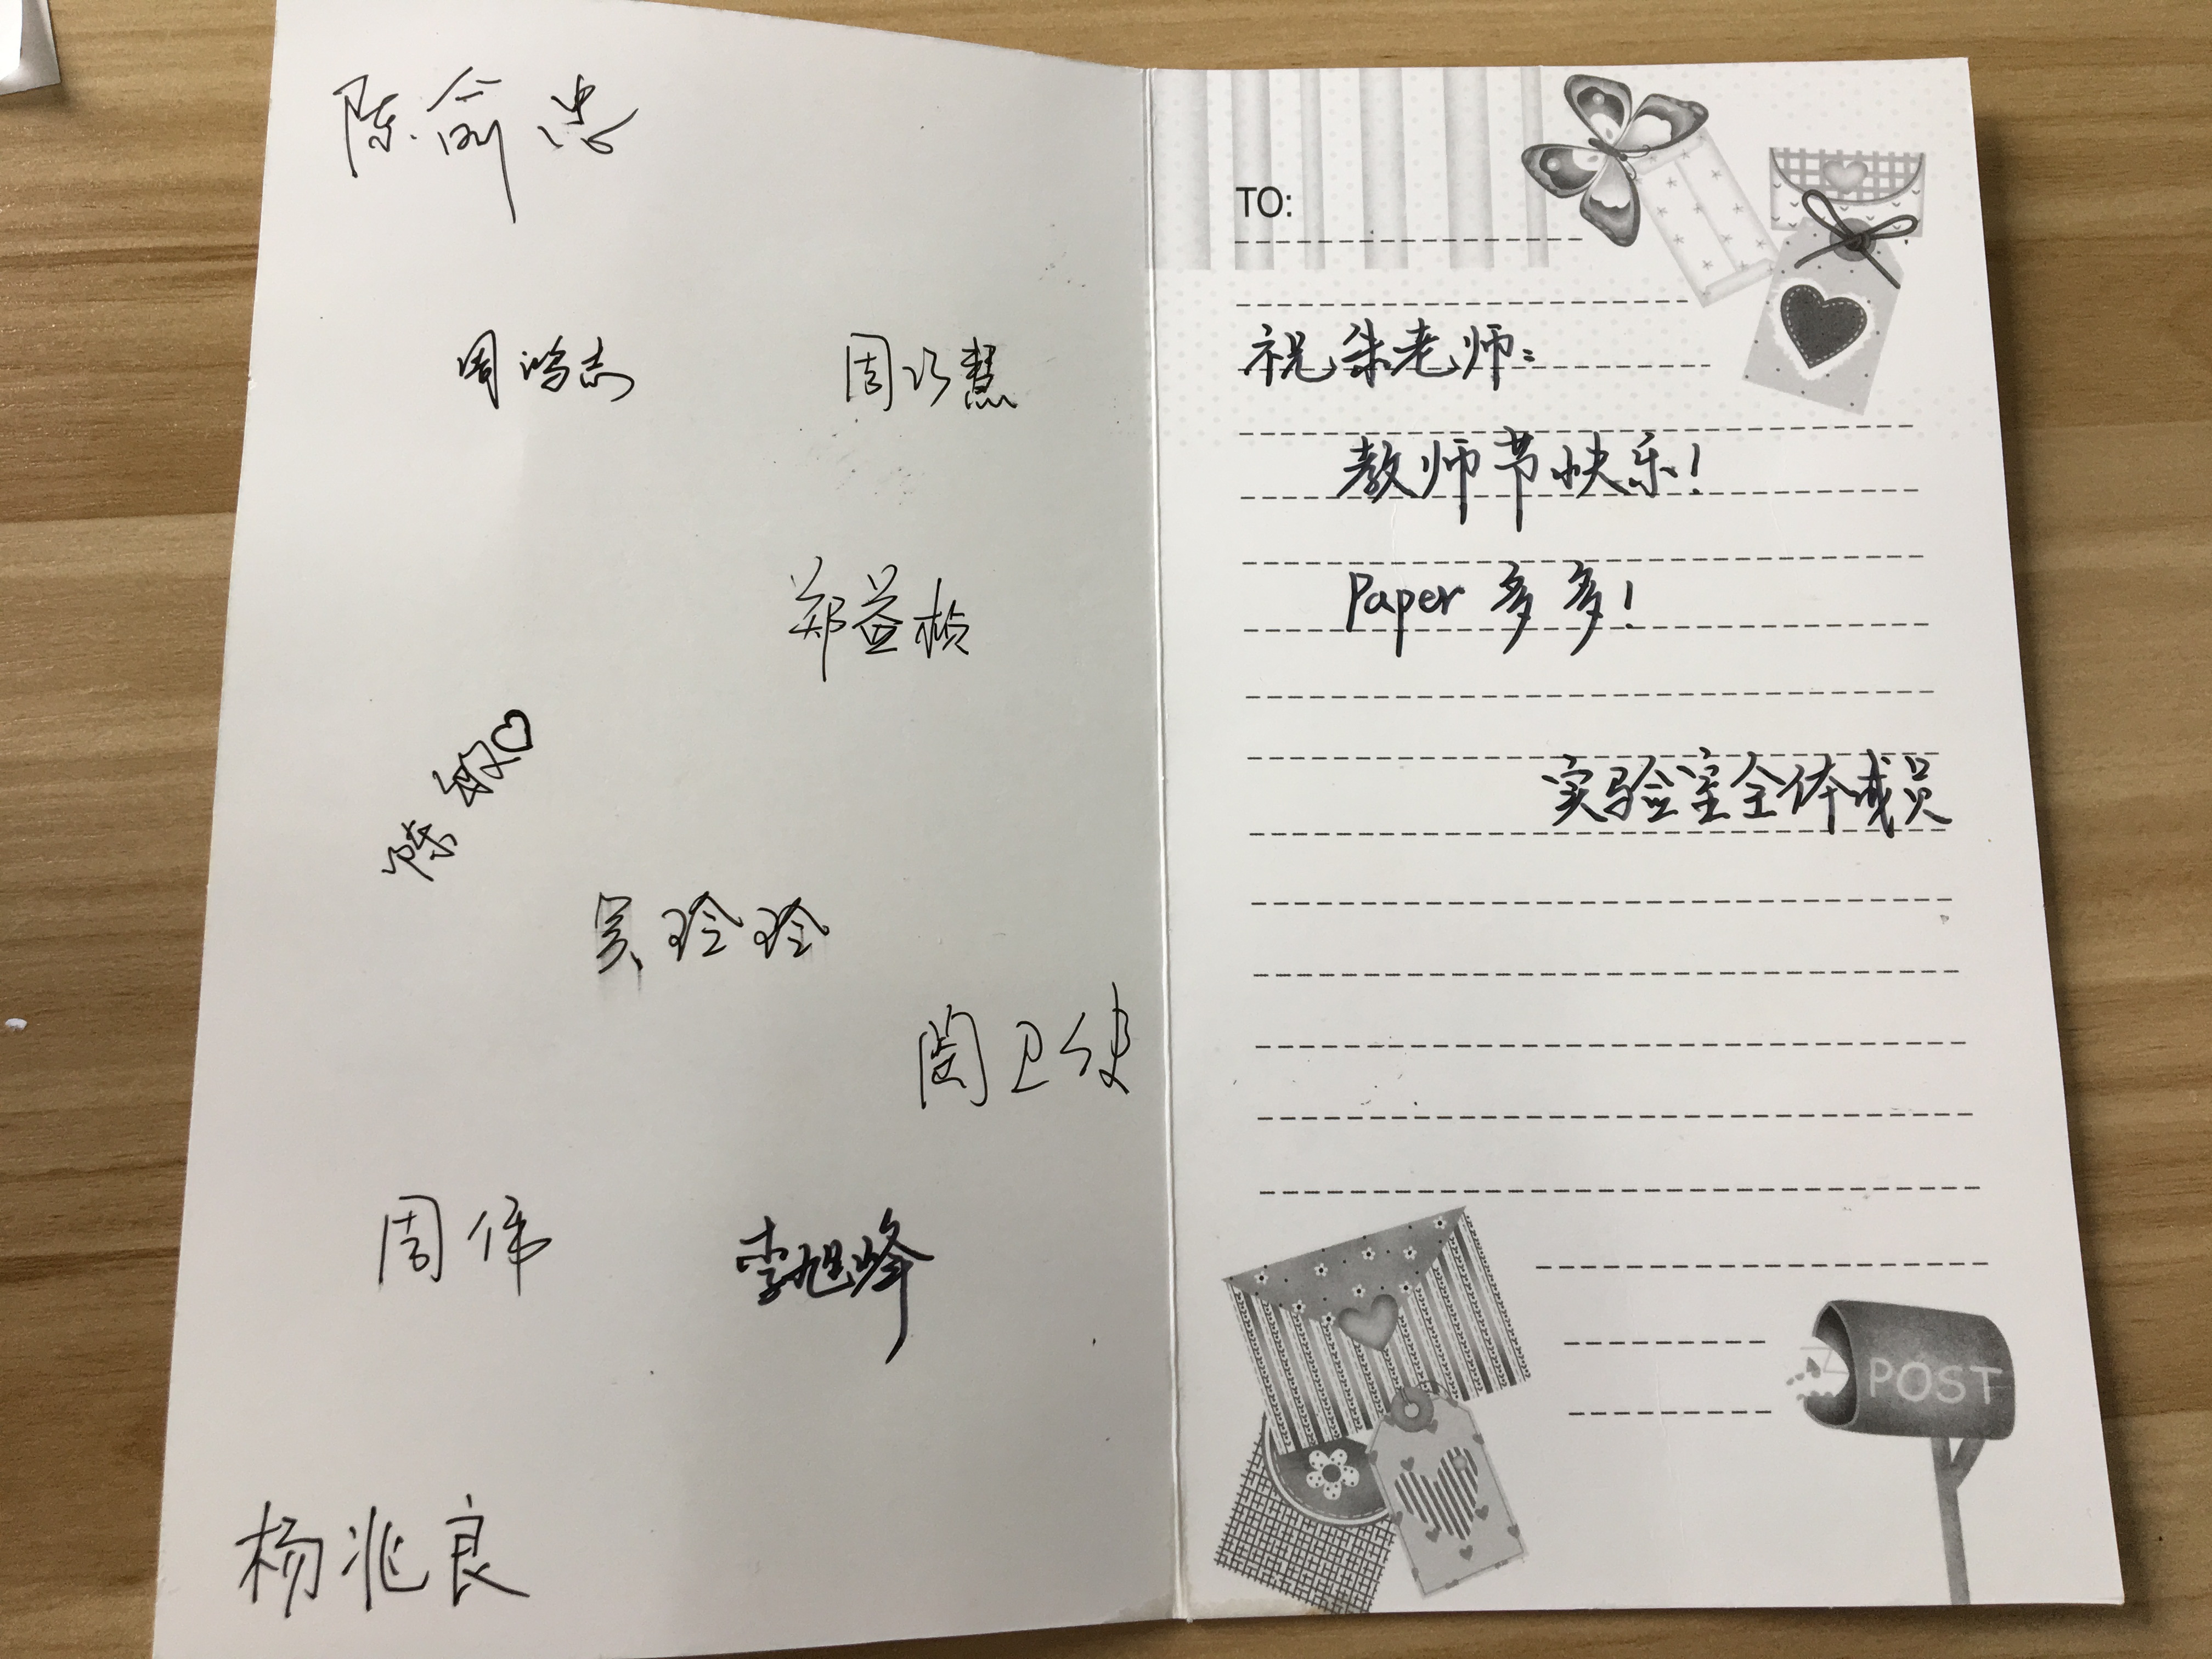 陈俞忠
周鸿志
周巧慧
郑益桢
陈敏♡
吴玲玲
周伟
李旭峰
杨兆良
TO:
祝朱老师:
教师节快乐!
Paper 多多!
实验室全体成员
POST